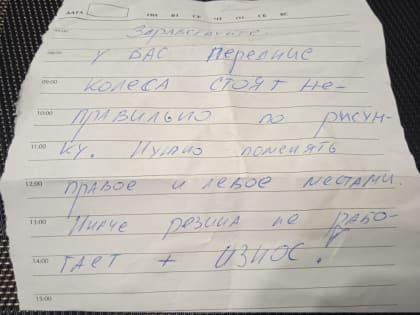 ДАТА ПН ВТ СР ЧТ ПТ СБ ВС
Здравствуйте.
У ВАС Передние
09:00 колеса стоят не-
10:00 правильно по рисун-
11:00 ку. Нужно поменять
12:00 правое и левое местами.
13:00 Иначе резина не рабо-
14:00 тает + ИЗНОС!
15:00